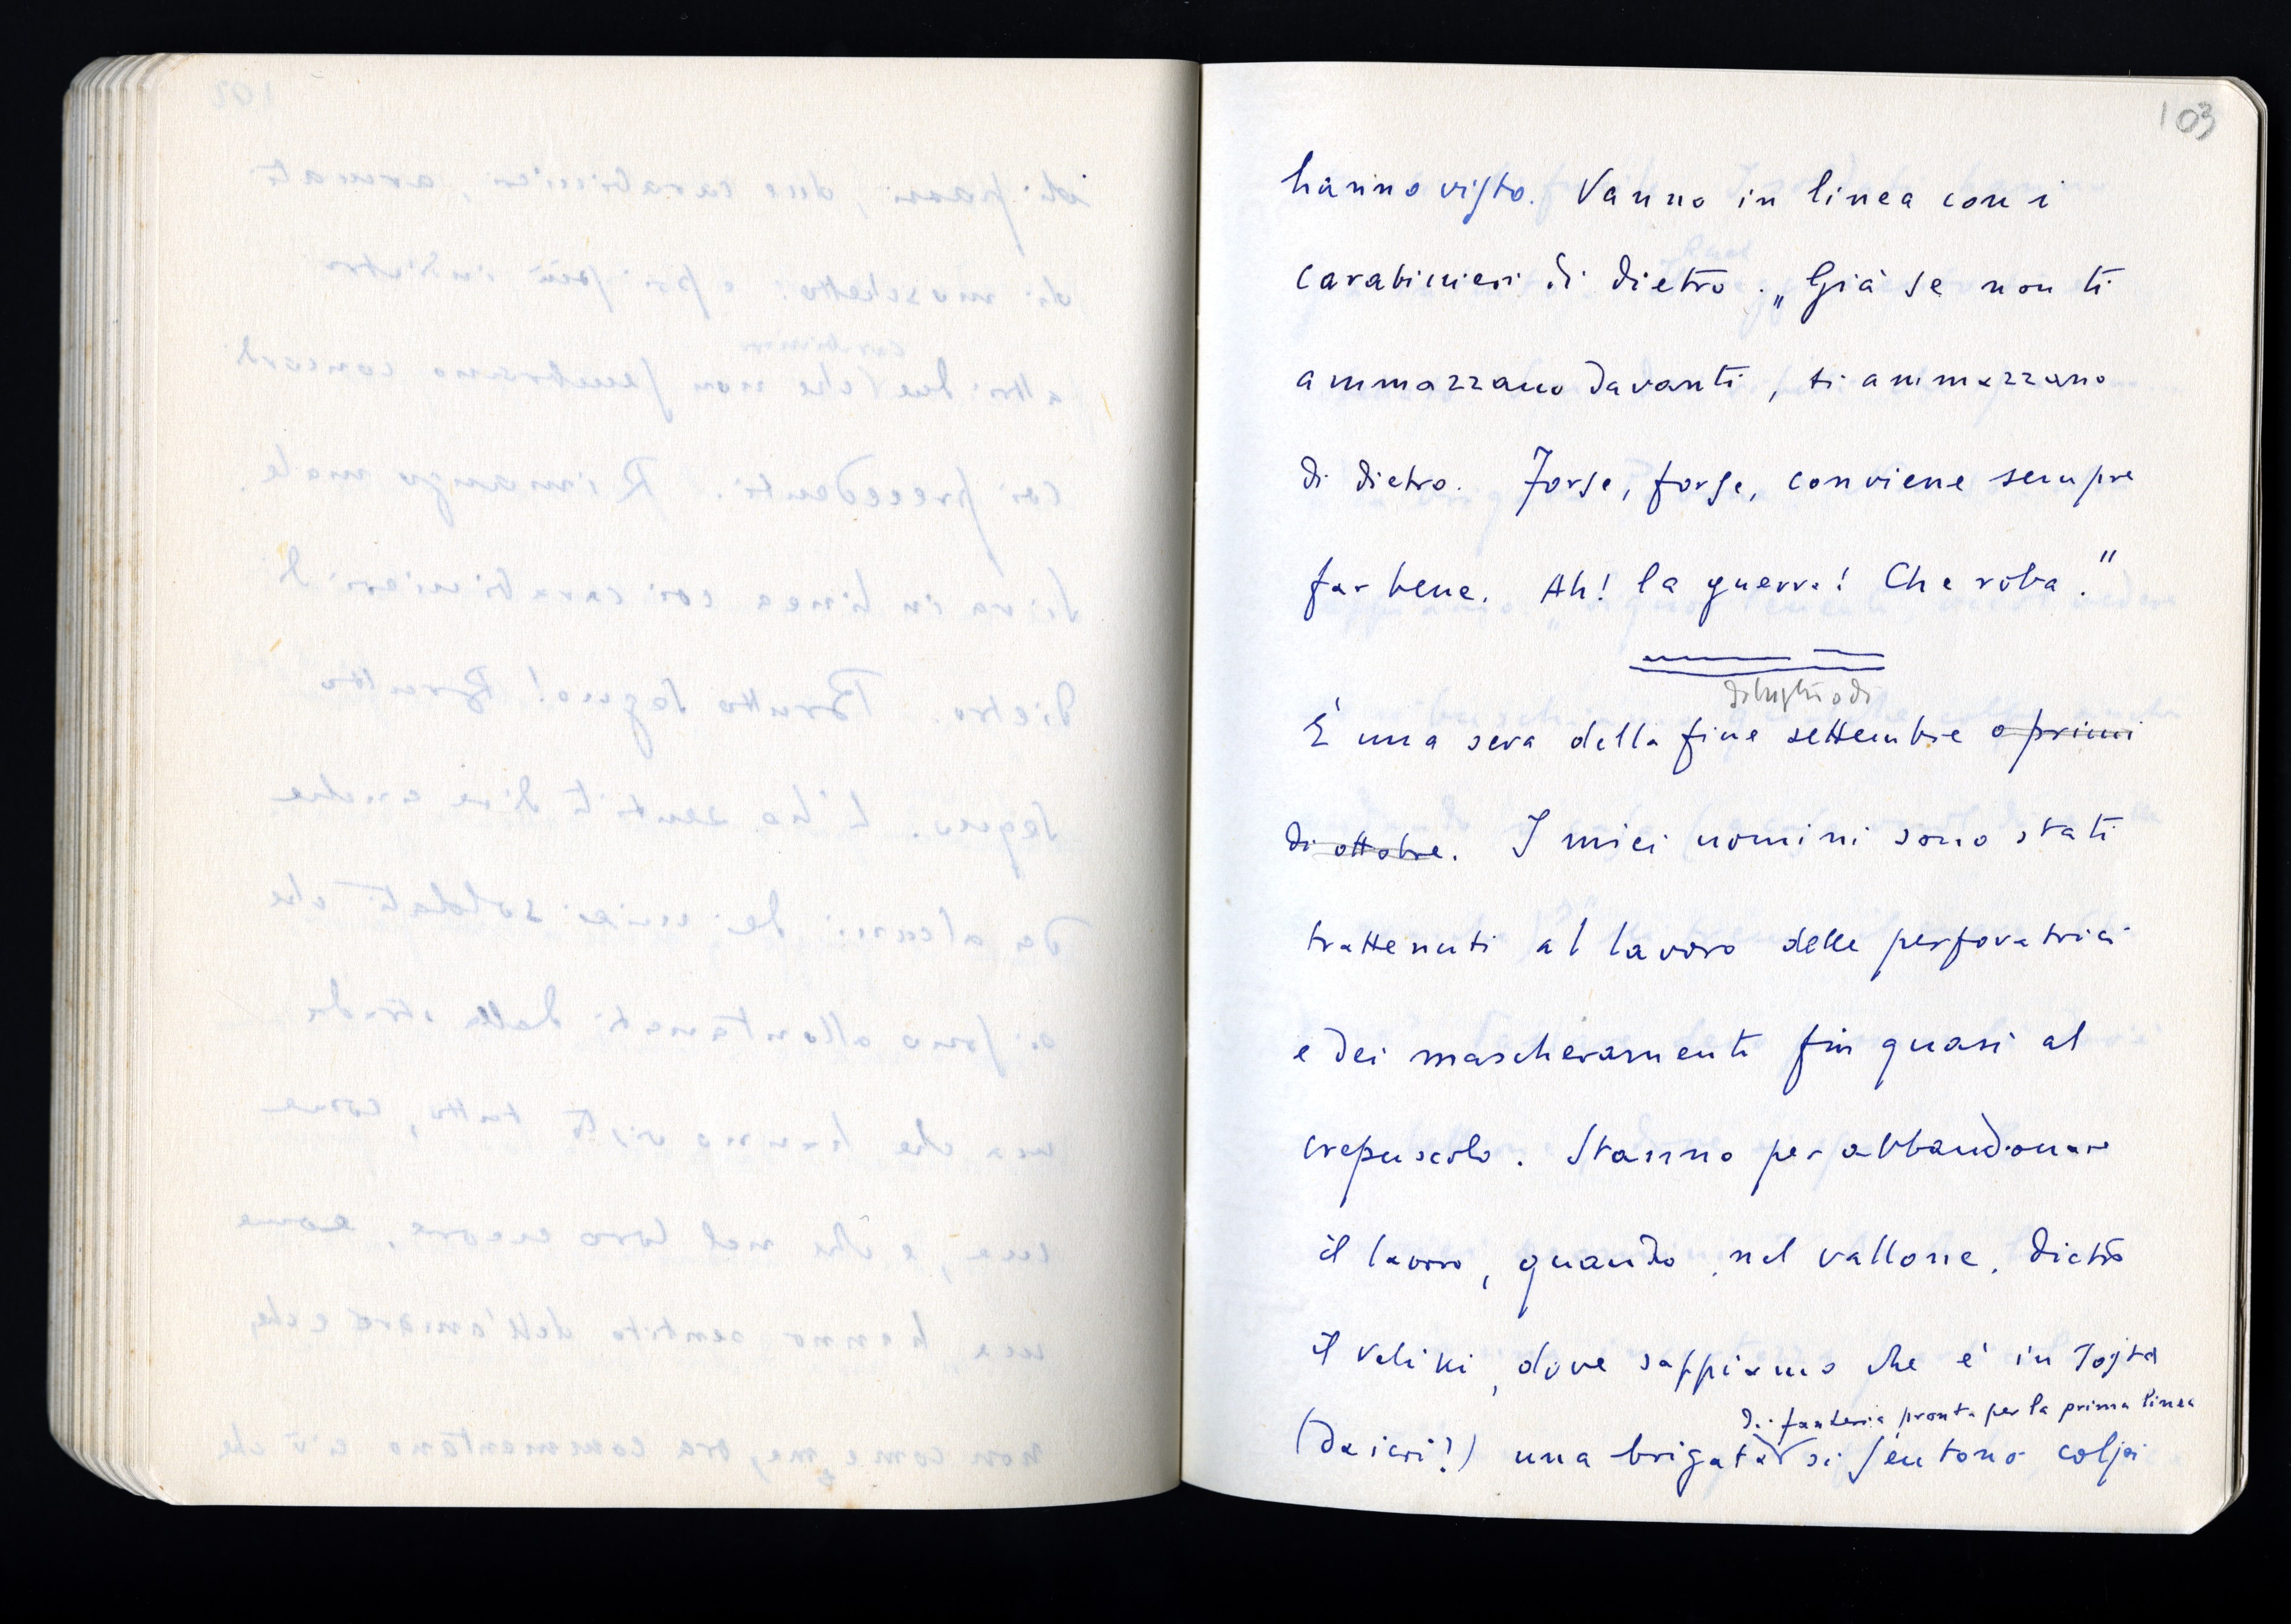 103
hanno visto. Vanno in linea con i
carabinieri di dietro. „Già se non ti
ammazzano davanti, ti ammazzano
di dietro. Forse, forse, conviene sempre
far bene. Ah! la guerra! Che roba."
È una sera della fine settembre o primi
di ottobre. I miei uomini sono stati
trattenuti al lavoro delle perforatrici
e dei mascheramenti fin quasi al
crepuscolo. Stanno per abbandonare
il lavoro, quando, nel vallone, dietro
il Veliki, dove sappiamo che è in sosta
di fanteria pronta per la prima linea
(da ieri?) una brigata si sentono colpi